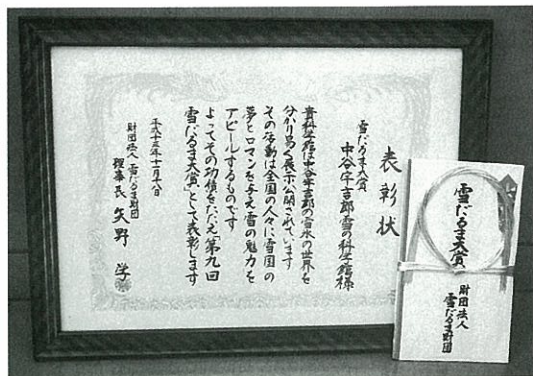 表彰状
雪だるま大賞
中谷宇吉郎雪の科学館様
貴科学館は中谷宇吉郎の雪氷の世界を
分かり易く展示公開されています
その活動は全国の人々に雪国の
夢とロマンを与え雪の魅力を
アピールするものです
よってその功績をたたえ「第九回
雪だるま大賞」として表彰します
平成十三年十一月八日
財団法人 雪だるま財団
理事長 矢野 学
雪だるま大賞
財団法人
雪だるま財団